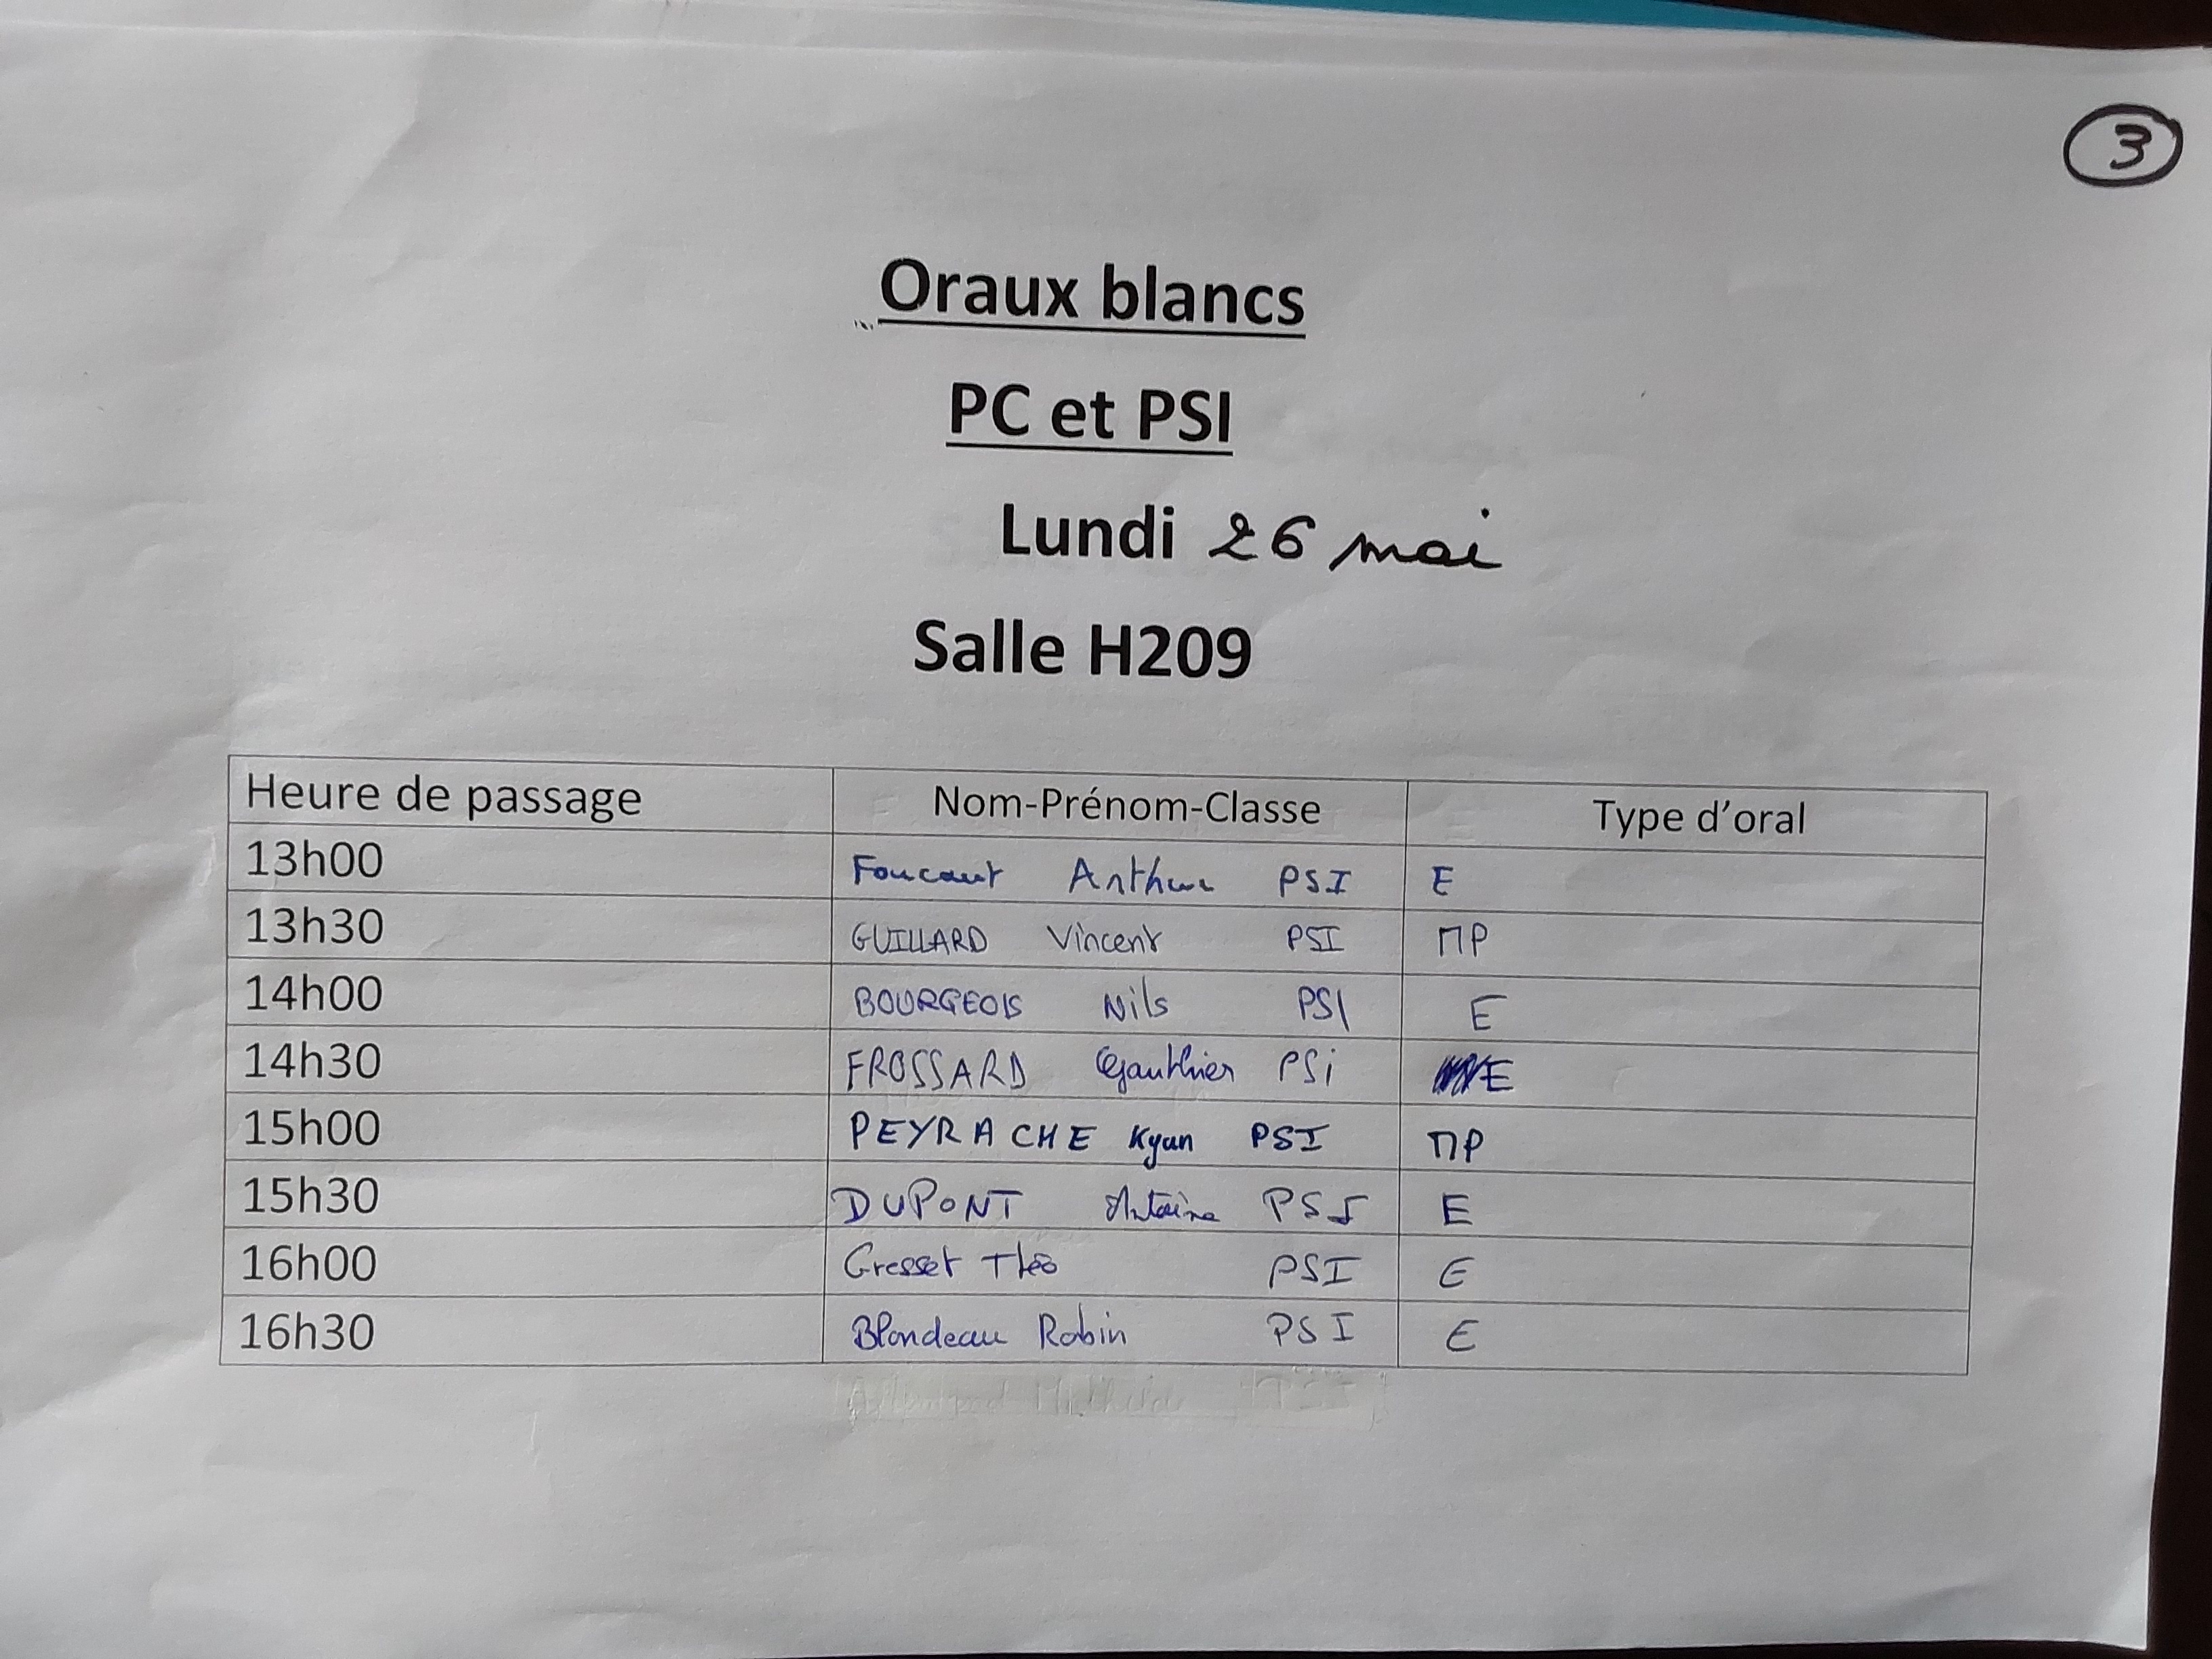 3
Oraux blancs
PC et PSI
Lundi 26 mai
Salle H209
Heure de passage Nom-Prénom-Classe Type d'oral
13h00 Foucaut Arthur PSI E
13h30 GUILLARD Vincent PSI MP
14h00 BOURGEOIS Nils PSI E
14h30 FROSSARD Gauthier PSi E
15h00 PEYRACHE Kyan PSI MP
15h30 DUPONT Antoine PSI E
16h00 Gresset Théo PSI E
16h30 Blondeau Robin PSI E